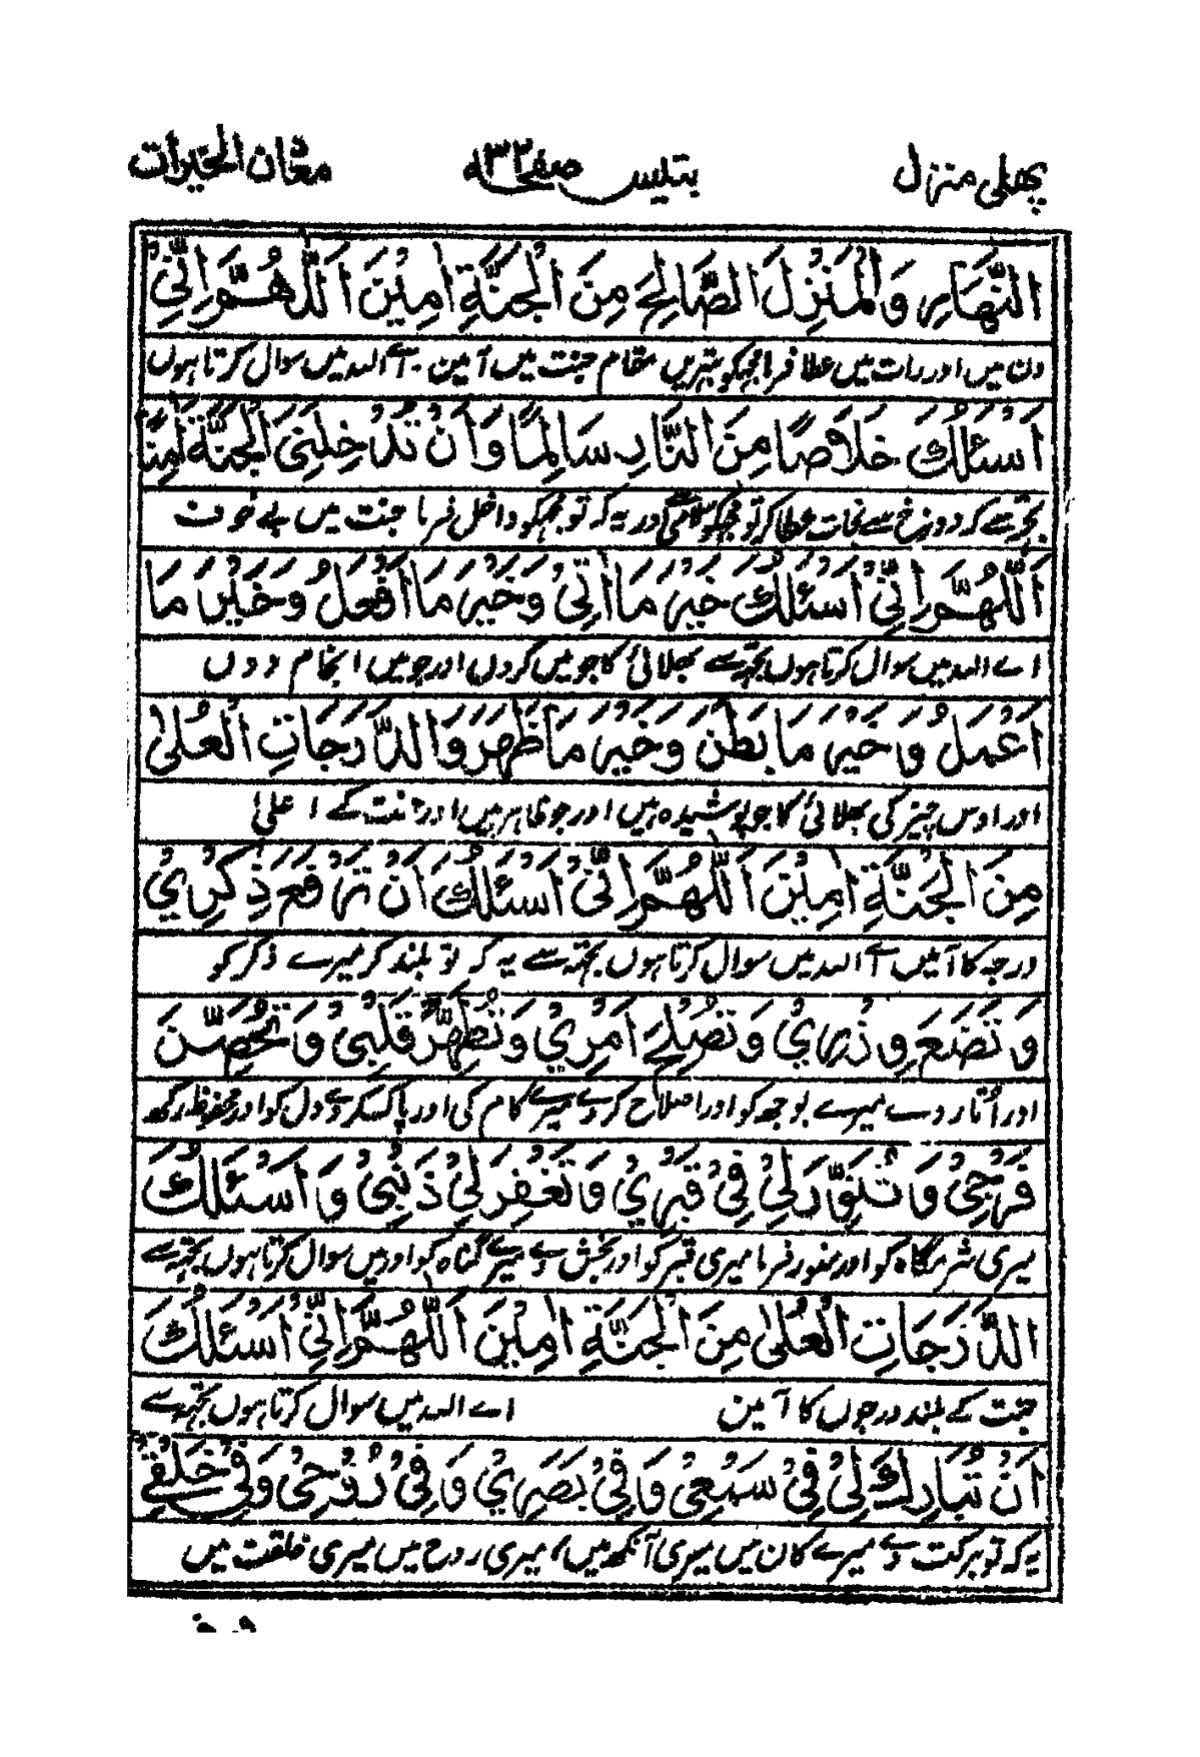 پھلی منزل بتیس صفحہ ۳۲ معان الخیرات
النَّهَارِ وَالْمَنْزِلَ الصَّالِحَ مِنَ الْجَنَّةِ اٰمِيْنَ اَللّٰهُمَّ اِنِّيْ
دن میں اور رات میں عطا فرا مجھکو بہتریں مقام جنت میں آمین۔ اے اللہ میں سوال کرتا ہوں
اَسْئَلُكَ خَلَاصًا مِنَ النَّارِ سَالِمًا وَاَنْ تُدْخِلَنِيْ الْجَنَّةَ اٰمِنًا
تجھ سے کہ دوزخ سے نجات عطا کر تو مجھکو سلامتی اور یہ کہ تو مجھکو داخل فرما جنت میں بے خوف
اَللّٰهُمَّ اِنِّيْ اَسْئَلُكَ خَيْرَ مَا اٰتِيْ وَخَيْرَ مَا اَفْعَلُ وَخَيْرَ مَا
اے اللہ میں سوال کرتا ہوں تجھ سے بھلائی کا جو میں کروں اور جو میں انجام دوں
اَعْمَلُ وَخَيْرَ مَا بَطَنَ وَخَيْرَ مَا ظَهَرَ وَالدَّرَجَاتِ الْعُلٰى
اور اوس چیز کی بھلائی کا جو پوشیدہ ہیں اور جو ظاہر ہیں اور جنت کے اعلیٰ
مِنَ الْجَنَّةِ اٰمِيْنَ اَللّٰهُمَّ اِنِّيْ اَسْئَلُكَ اَنْ تَرْفَعَ ذِكْرِيْ
درجہ کا آمیں اے اللہ میں سوال کرتا ہوں تجھ سے یہ کہ تو بلند کر میرے ذکر کو
وَتَضَعَ وِزْرِيْ وَتُصْلِحَ اَمْرِيْ وَتُطَهِّرَ قَلْبِيْ وَتُحَصِّنَ
اور اُتار دے میرے بوجھ کو اور اصلاح کر دے میرے کام کی اور پاک کر دے دل کو اور محفوظ رکھ
فَرْجِيْ وَتُنَوِّرَ لِيْ فِيْ قَبْرِيْ وَتَغْفِرَ لِيْ ذَنْبِيْ وَاَسْئَلُكَ
میری شرمگاہ کو اور منور فرما میری قبر کو اور بخش دے میرے گناہ کو اور میں سوال کرتا ہوں تجھ سے
الدَّرَجَاتِ الْعُلٰى مِنَ الْجَنَّةِ اٰمِيْنَ اَللّٰهُمَّ اِنِّيْ اَسْئَلُكَ
جنت کے بلند درجوں کا آمین اے اللہ میں سوال کرتا ہوں تجھ سے
اَنْ تُبَارِكَ لِيْ فِيْ سَمْعِيْ وَفِيْ بَصَرِيْ وَفِيْ رُوْحِيْ وَفِيْ خَلْقِيْ
یہ کہ تو برکت دے میرے کان میں میری آنکھ میں، میری روح میں میری خلقت میں